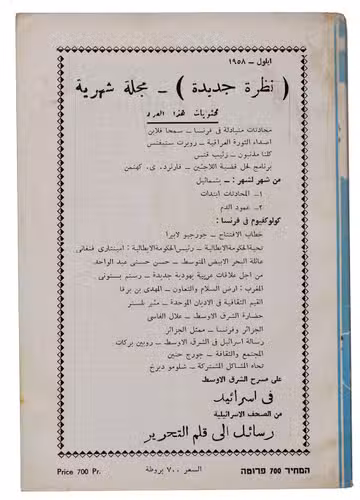 ايلول - ١٩٥٨
( نظرة جديدة ) - مجلة شهرية
محتويات هذا العدد
محادثات متبادلة في فرنسا - سمحا فلابن
اصداء الثورة العراقية - روبرت ستيفنس
كلنا مذنبون - رئيف
برنامج لحل قضية اللاجئين - فارنزد. ى. كهنمن
من شهر لشهر : - بشمائيل
١- المحادثات ابتدأت
٢- عمود الدم
كولوكفيوم في فرنسا :
خطاب الافتتاح - جورجيو لابيرا
تحية الحكومة الايطالية - رئيس الحكومة الايطالية : امينتاري فنفاني
عائلة البحر الابيض المتوسط - حسن حسني عبد الواحد
من اجل علاقات عربية يهودية جديدة - رستم بستوني
المغرب : ارض السلام والتعاون - المهدي بن برقا
القيم الثقافية في الاديان الموحدة - مثير بلستر
حضارة الشرق الاوسط - علال الفاسي
الجزائر وفرنسا - ممثل الجزائر
رسالة اسرائيل في الشرق الاوسط - روبين بركات
المجتمع والثقافة - جورج حنين
تجاه المشاكل المشتركة - شلومو
على مسرح الشرق الاوسط
في اسرائيل
من الصحف الاسرائيلية
رسائل الى قلم التحرير
Price 700 Pr. السعر ٧٠٠ بروطة המחיר 700 פרוטה